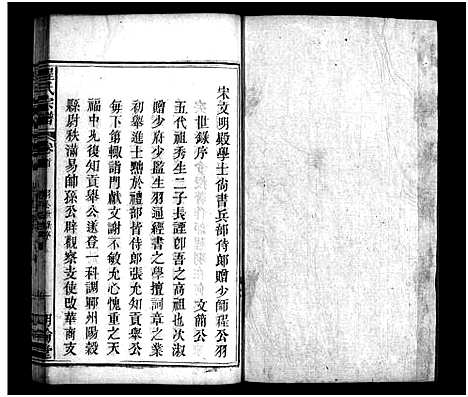 宋文明殿學士尙書兵部侍郞贈少師程公羽
世錄序
文簡公
五代祖秀生二子長諲卽吾之高祖也次淑
贈少府少監生羽通經書之學擅詞章之業
初舉進士黜於禮部皆侍郞張允知貢舉公
每下第輒詣門獻文謝不敏允心愧重之天
福中允復知貢舉公遂登一科調聊州陽穀
縣尉秩滿易帥孫公辟觀察支使改華商支
程氏宗譜
卷首
明倫堂